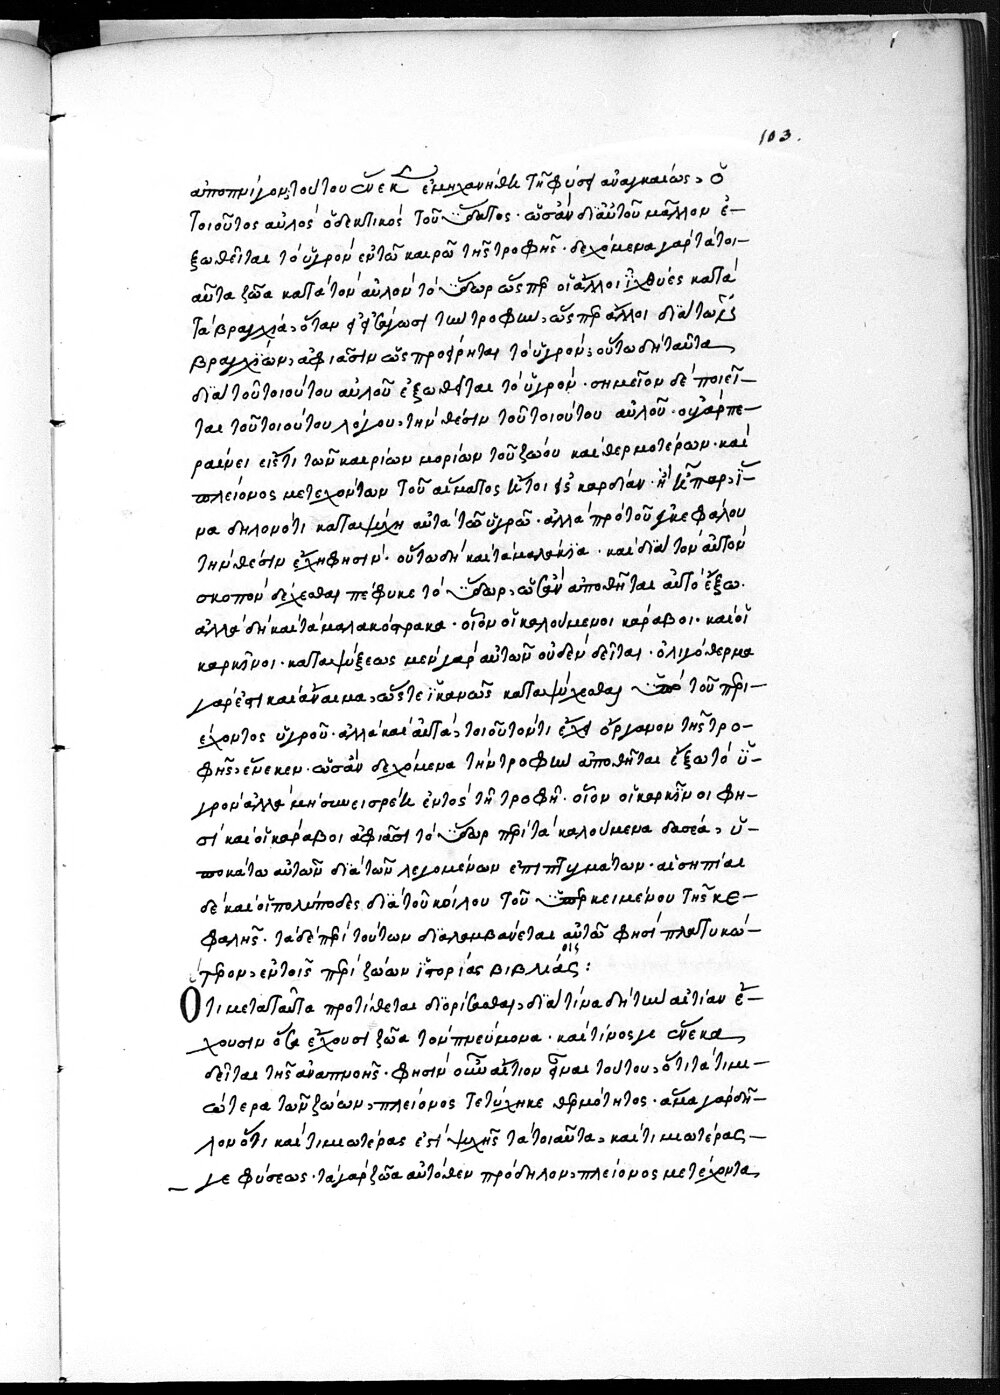 103.
ἀποπνίγον· τούτου οὕνεκα ἐμηχανήθη τῇ φύσει ἀναγκαίως, ὁ
τοιοῦτος αὐλὸς ὁ δεκτικὸς τοῦ ὕδατος· ὡς ἂν δι' αὐτοῦ μᾶλλον ἐ-
ξωθεῖται τὸ ὑγρὸν ἐν τῷ καιρῷ τῆς τροφῆς· δεχόμενα γὰρ τὰ τοι-
αῦτα ζῶα κατὰ τὸν αὐλὸν τὸ ὕδωρ ὥσπερ οἱ ἄλλοι ἰχθύες κατὰ
τὰ βραγχία, ὅταν τὴν τροφὴν, ὥσπερ ἄλλοι διὰ τῶν
βραγχίων, ἀφιᾶσιν ὡς προείρηται τὸ ὑγρόν, οὕτω δὴ ταῦτα
διὰ τοῦ τοιούτου αὐλοῦ ἐξωθεῖται τὸ ὑγρόν· σημεῖον δὲ ποιεῖ-
ται τοῦ τοιούτου λόγου, τὴν θέσιν τοῦ τοιούτου αὐλοῦ· οὐ γὰρ πε-
ραίνει εἴς τι τῶν καιρίων μορίων τοῦ ζώου καὶ θερμοτέρων· καὶ
πλείονος μετεχόντων τοῦ αἵματος ἤτοι εἰς καρδίαν· ἢ ἧπαρ, ἵ-
να δηλονότι καταψύχῃ αὐτὰ τῷ ὑγρῷ· ἀλλὰ πρὸ τοῦ ἐγκεφάλου
τὴν θέσιν εἴληφησιν· οὕτω δὴ καὶ τὰ μαλάκια· καὶ διὰ τὸν αὐτὸν
σκοπὸν δέχεσθαι πέφυκε τὸ ὕδωρ, ὡς ἂν ἀποθῆται αὐτὸ ἔξω·
ἀλλὰ δὴ καὶ τὰ μαλακόστρακα· οἷον οἱ καλούμενοι κάραβοι· καὶ οἱ
καρκῖνοι· καταψύξεως μὲν γὰρ αὐτῶν οὐδὲν δεῖται· ὀλιγόθερμα
γάρ ἐστι καὶ ἄναιμα, ὥστε ἱκανῶς καταψύχεσθαι ὑπὸ τοῦ περι-
έχοντος ὑγροῦ· ἀλλὰ καὶ αὐτὰ, τοιοῦτόν τι ἔχει ὄργανον τῆς τρο-
φῆς, ἕνεκεν· ὡς ἂν δεχόμενα τὴν τροφὴν ἀποθῆται ἔξω τὸ ὑ-
γρὸν ἀλλὰ μὴ συνεισρέῃ ἐντὸς τῇ τροφῇ· οἷον οἱ καρκῖνοι φη-
σὶ καὶ οἱ κάραβοι ἀφιᾶσι τὸ ὕδωρ περὶ τὰ καλούμενα δασέα, ὑ-
ποκάτω αὐτῶν διὰ τῶν λεγομένων ἐπιπτυγμάτων· αἱ σηπίαι
δὲ καὶ οἱ πολύποδες διὰ τοῦ κοίλου τοῦ ὑπερκειμένου τῆς κε-
φαλῆς· τὰ δὲ περὶ τούτων διαλαμβάνεται αὐτῷ φησὶ πλατυκώ-
τερον, ἐν τοῖς περὶ ζώων ἱστορίας βιβλίοις:
Ὅτι μετὰ ταῦτα προτίθεται διορίσασθαι, διὰ τίνα δὴ τὴν αἰτίαν ἔ-
χουσιν ὅσα ἔχουσι ζῶα τὸν πνεύμονα· καὶ τίνος γε οὕνεκα
δεῖται τῆς ἀναπνοῆς· φησὶν οὖν αἴτιον εἶναι τούτου, ὅτι τὰ τιμι-
ώτερα τῶν ζώων, πλείονος τετύχηκε θερμότητος· ἅμα γὰρ δῆ-
λον ὅτι καὶ τιμιωτέρας ἐστὶ ψυχῆς τὰ τοιαῦτα, καὶ τιμιωτέρας
γε φύσεως· τὰ γὰρ ζῶα αὐτόθεν πρόδηλον, πλείονος μετέχοντα